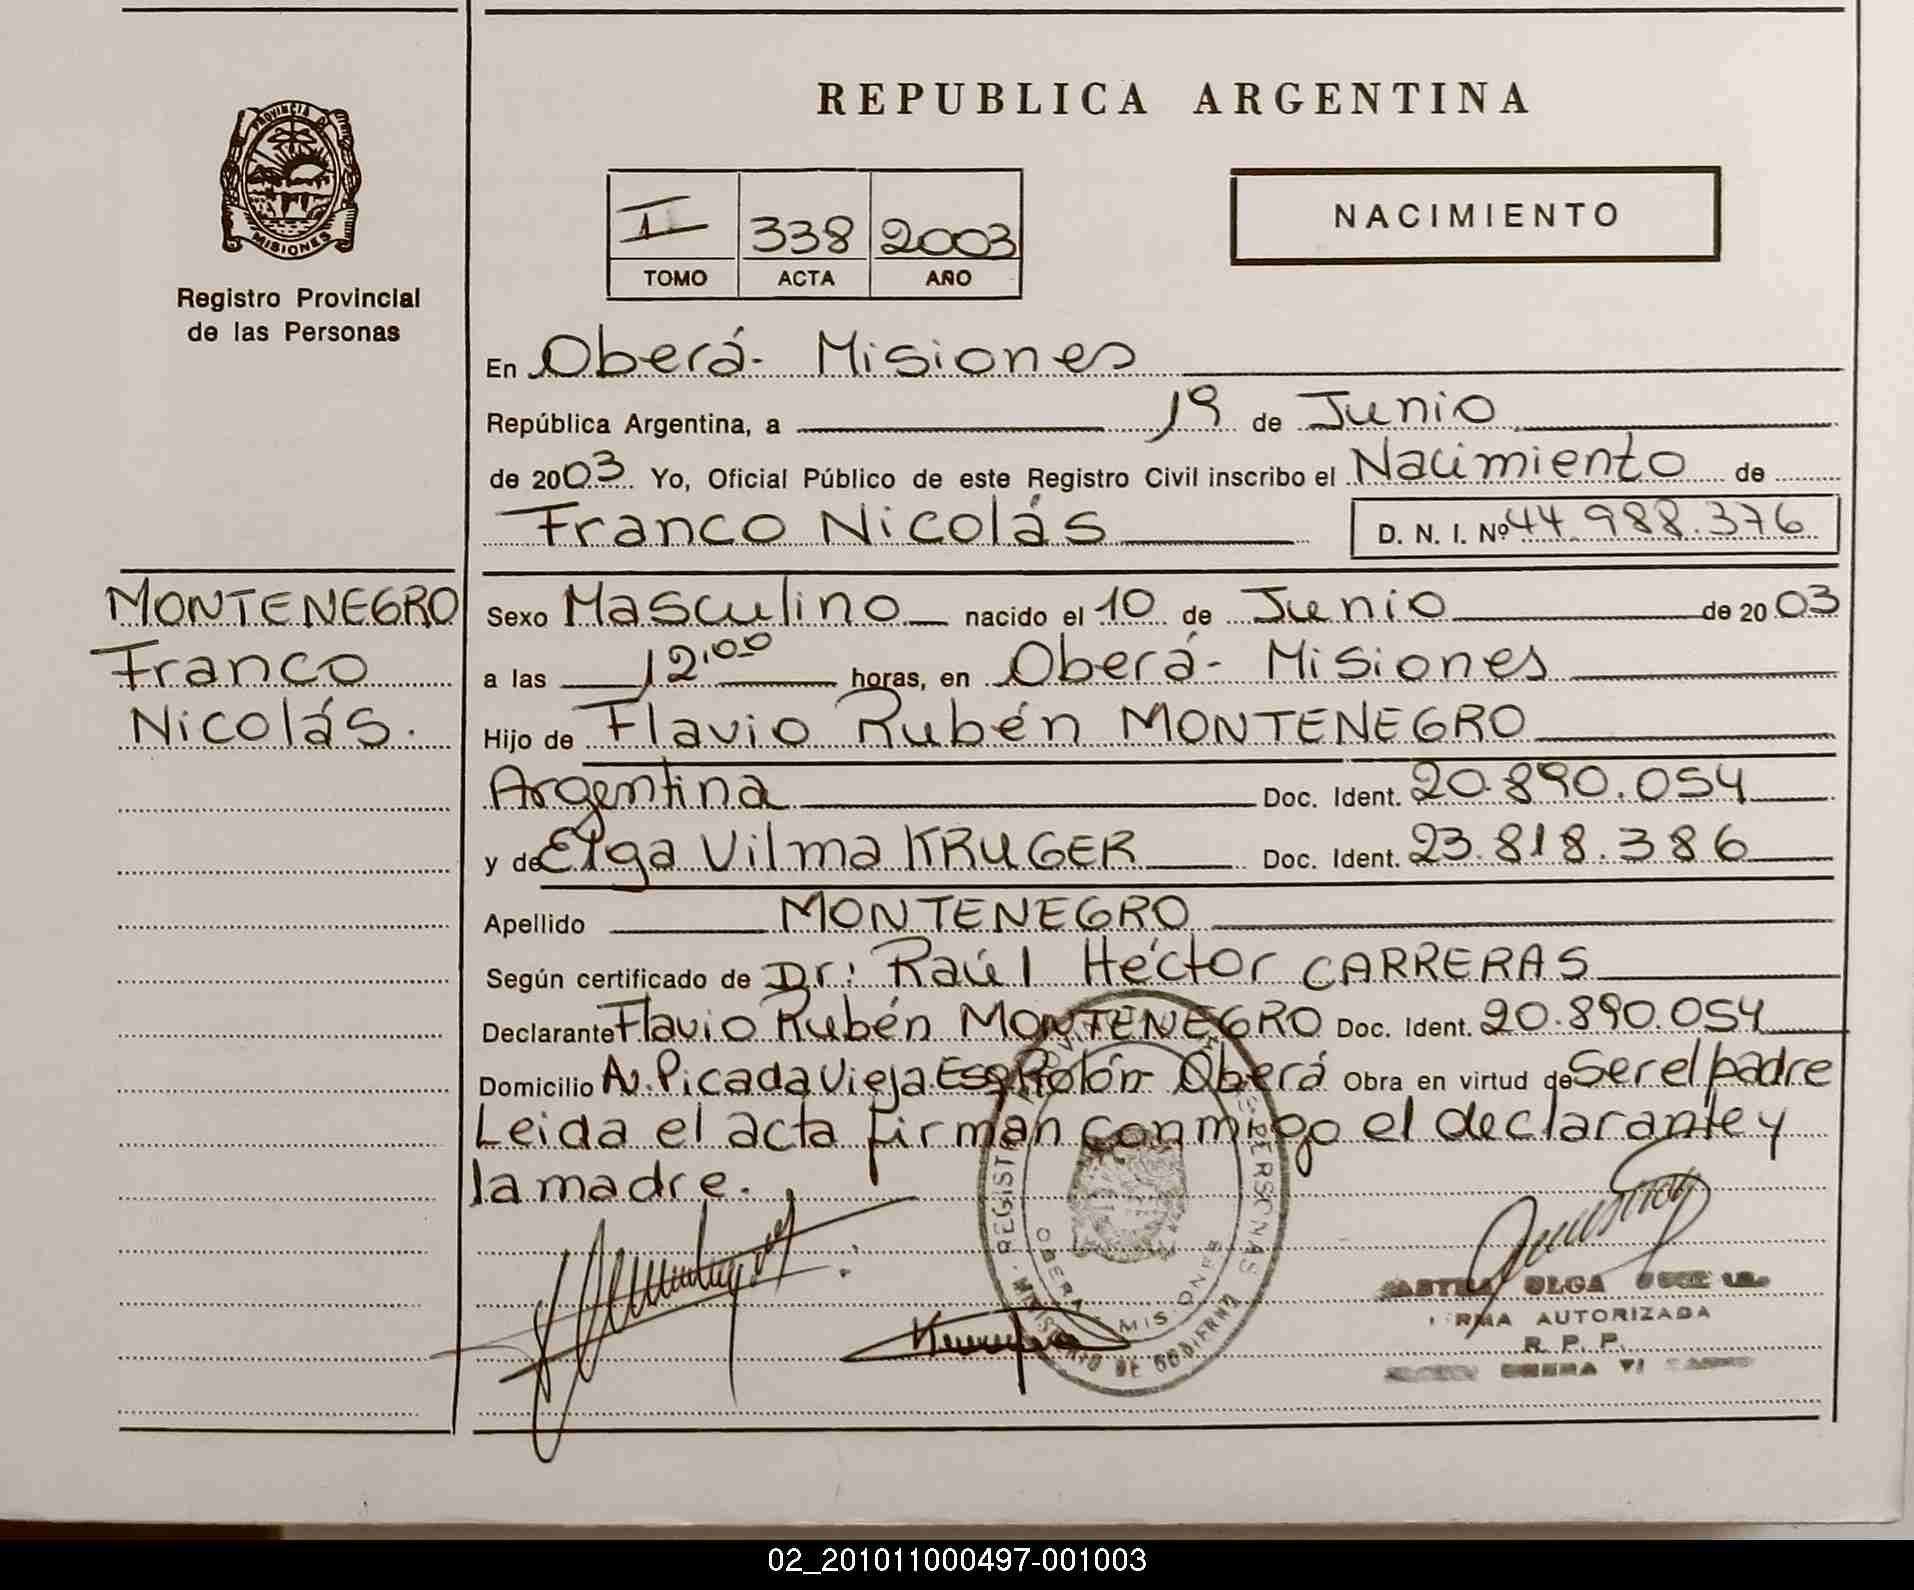 REPUBLICA ARGENTINA
PROVINCIA DE
MISIONES
Registro Provincial
de las Personas
II 338 2003
TOMO ACTA AÑO
NACIMIENTO
En Oberá - Misiones
República Argentina, a 19 de Junio
de 2003 Yo, Oficial Público de este Registro Civil inscribo el Nacimiento de
Franco Nicolás D. N. I. Nº 44.988.376
MONTENEGRO
Franco
Nicolás.
Sexo Masculino nacido el 10 de Junio de 2003
a las 12,00 horas, en Oberá - Misiones
Hijo de Flavio Rubén MONTENEGRO
Argentina Doc. Ident. 20.890.054
y de Elga Vilma KRUGER Doc. Ident. 23.818.386
Apellido MONTENEGRO
Según certificado de Dr: Raúl Héctor CARRERAS
Declarante Flavio Rubén MONTENEGRO Doc. Ident. 20.890.054
Domicilio Av. Picada Vieja Esq Rolón - Oberá Obra en virtud de Ser el padre
Leida el acta firman conmigo el declarante y
la madre.
OLGA
FIRMA AUTORIZADA
R. P. P.
OBERA
MISIONES
MINISTERIO DE GOBIERNO
02_201011000497-001003